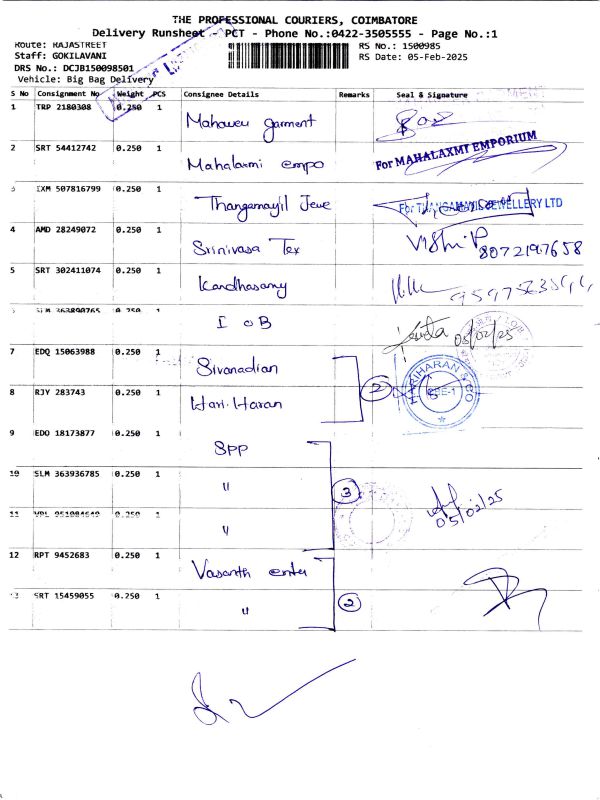 THE PROFESSIONAL COURIERS, COIMBATORE
Delivery Runsheet - PCT - Phone No.:0422-3505555 - Page No.:1
Route: RAJASTREET
RS No.: 1500985
Staff: GOKILAVANI
RS Date: 05-Feb-2025
DRS No.: DCJB150098501
Vehicle: Big Bag Delivery
S No Consignment No Weight PCS Consignee Details Remarks Seal & Signature
1 TRP 2180308 0.250 1 garment
2 SRT 54412742 0.250 1 Mahalaxmi empo For MAHALAXMI EMPORIUM
3 IXM 507816799 0.250 1 Thangamayil Jewe For THANGAMAYIL JEWELLERY LTD
4 AMD 28249072 0.250 1 Srinivasa Tex 8072197658
5 SRT 302411074 0.250 1 Kandhasamy
SLM 363890765 0.250 1 I O B 05/02/25
7 EDQ 15063988 0.250 1 Sivanadian
2 HARIHARAN & CO
8 RJY 283743 0.250 1 Hari.Haran
9 EDO 18173877 0.250 1 SPP
10 SLM 363936785 0.250 1 "
3 05/02/25
11 0.250 1 "
12 RPT 9452683 0.250 1 Vasanth enter
13 SRT 15459055 0.250 1 " 2